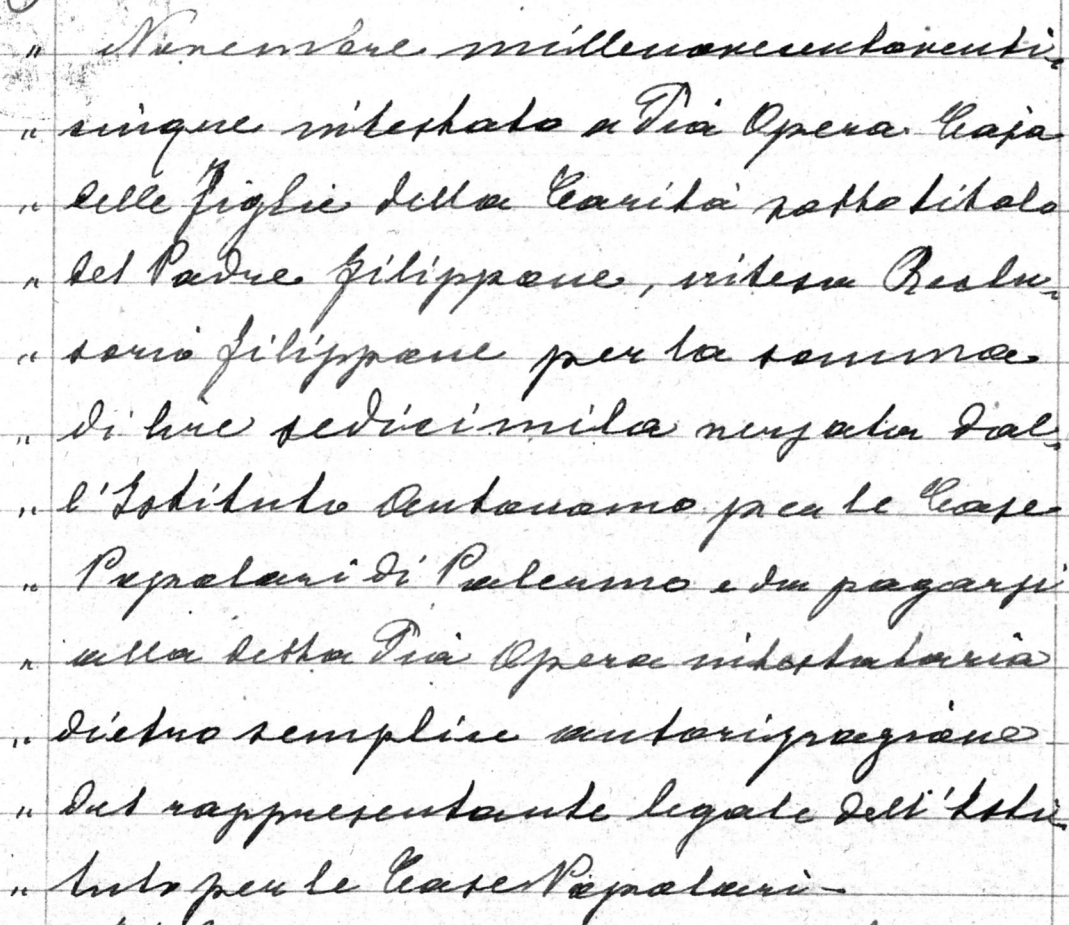 " Novembre millenovecentoventi-
" cinque intestato a Pia Opera Casa
" delle Figlie della Carità sotto titolo
" del Padre Filippone, intesa Reclu-
" sorio Filippone per la somma
" di lire sedicimila versata dal-
" l'Istituto Autonomo per le Case
" Popolari di Palermo e da pagarsi
" alla detta Pia Opera intestataria
" dietro semplice autorizzazione
" del rappresentante legale dell'Isti-
" tuto per le Case Popolari -